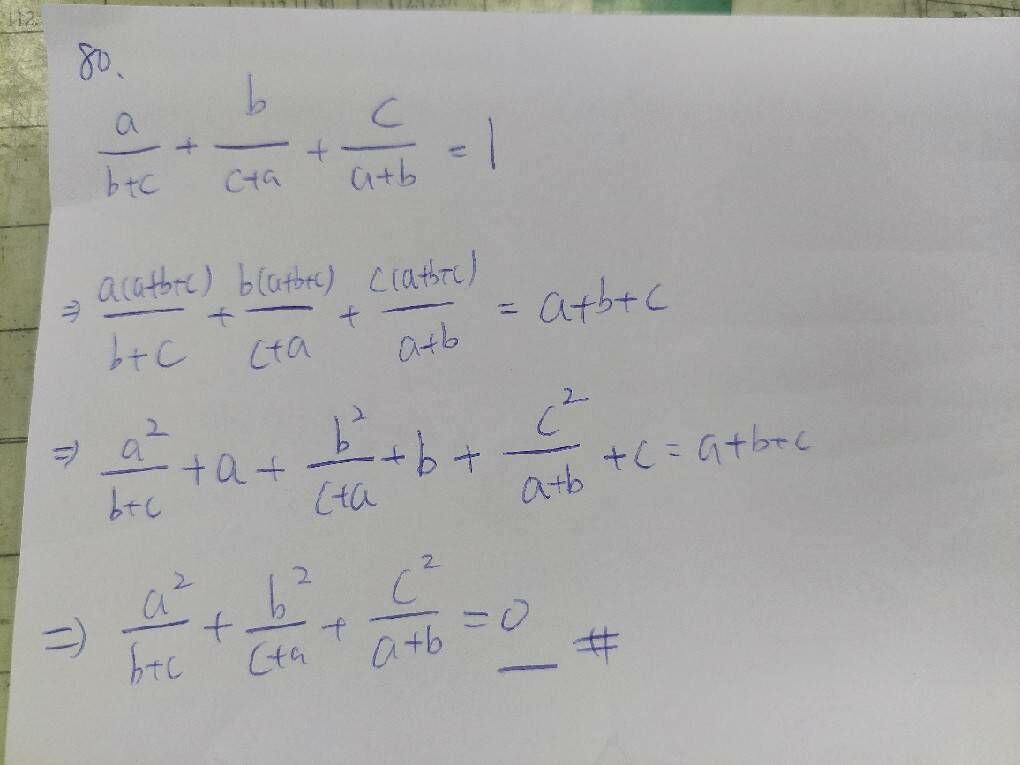 80.
a/(b+c) + b/(c+a) + c/(a+b) = 1
⇒ a(a+b+c)/(b+c) + b(a+b+c)/(c+a) + c(a+b+c)/(a+b) = a+b+c
⇒ a²/(b+c) + a + b²/(c+a) + b + c²/(a+b) + c = a+b+c
⇒ a²/(b+c) + b²/(c+a) + c²/(a+b) = 0 #